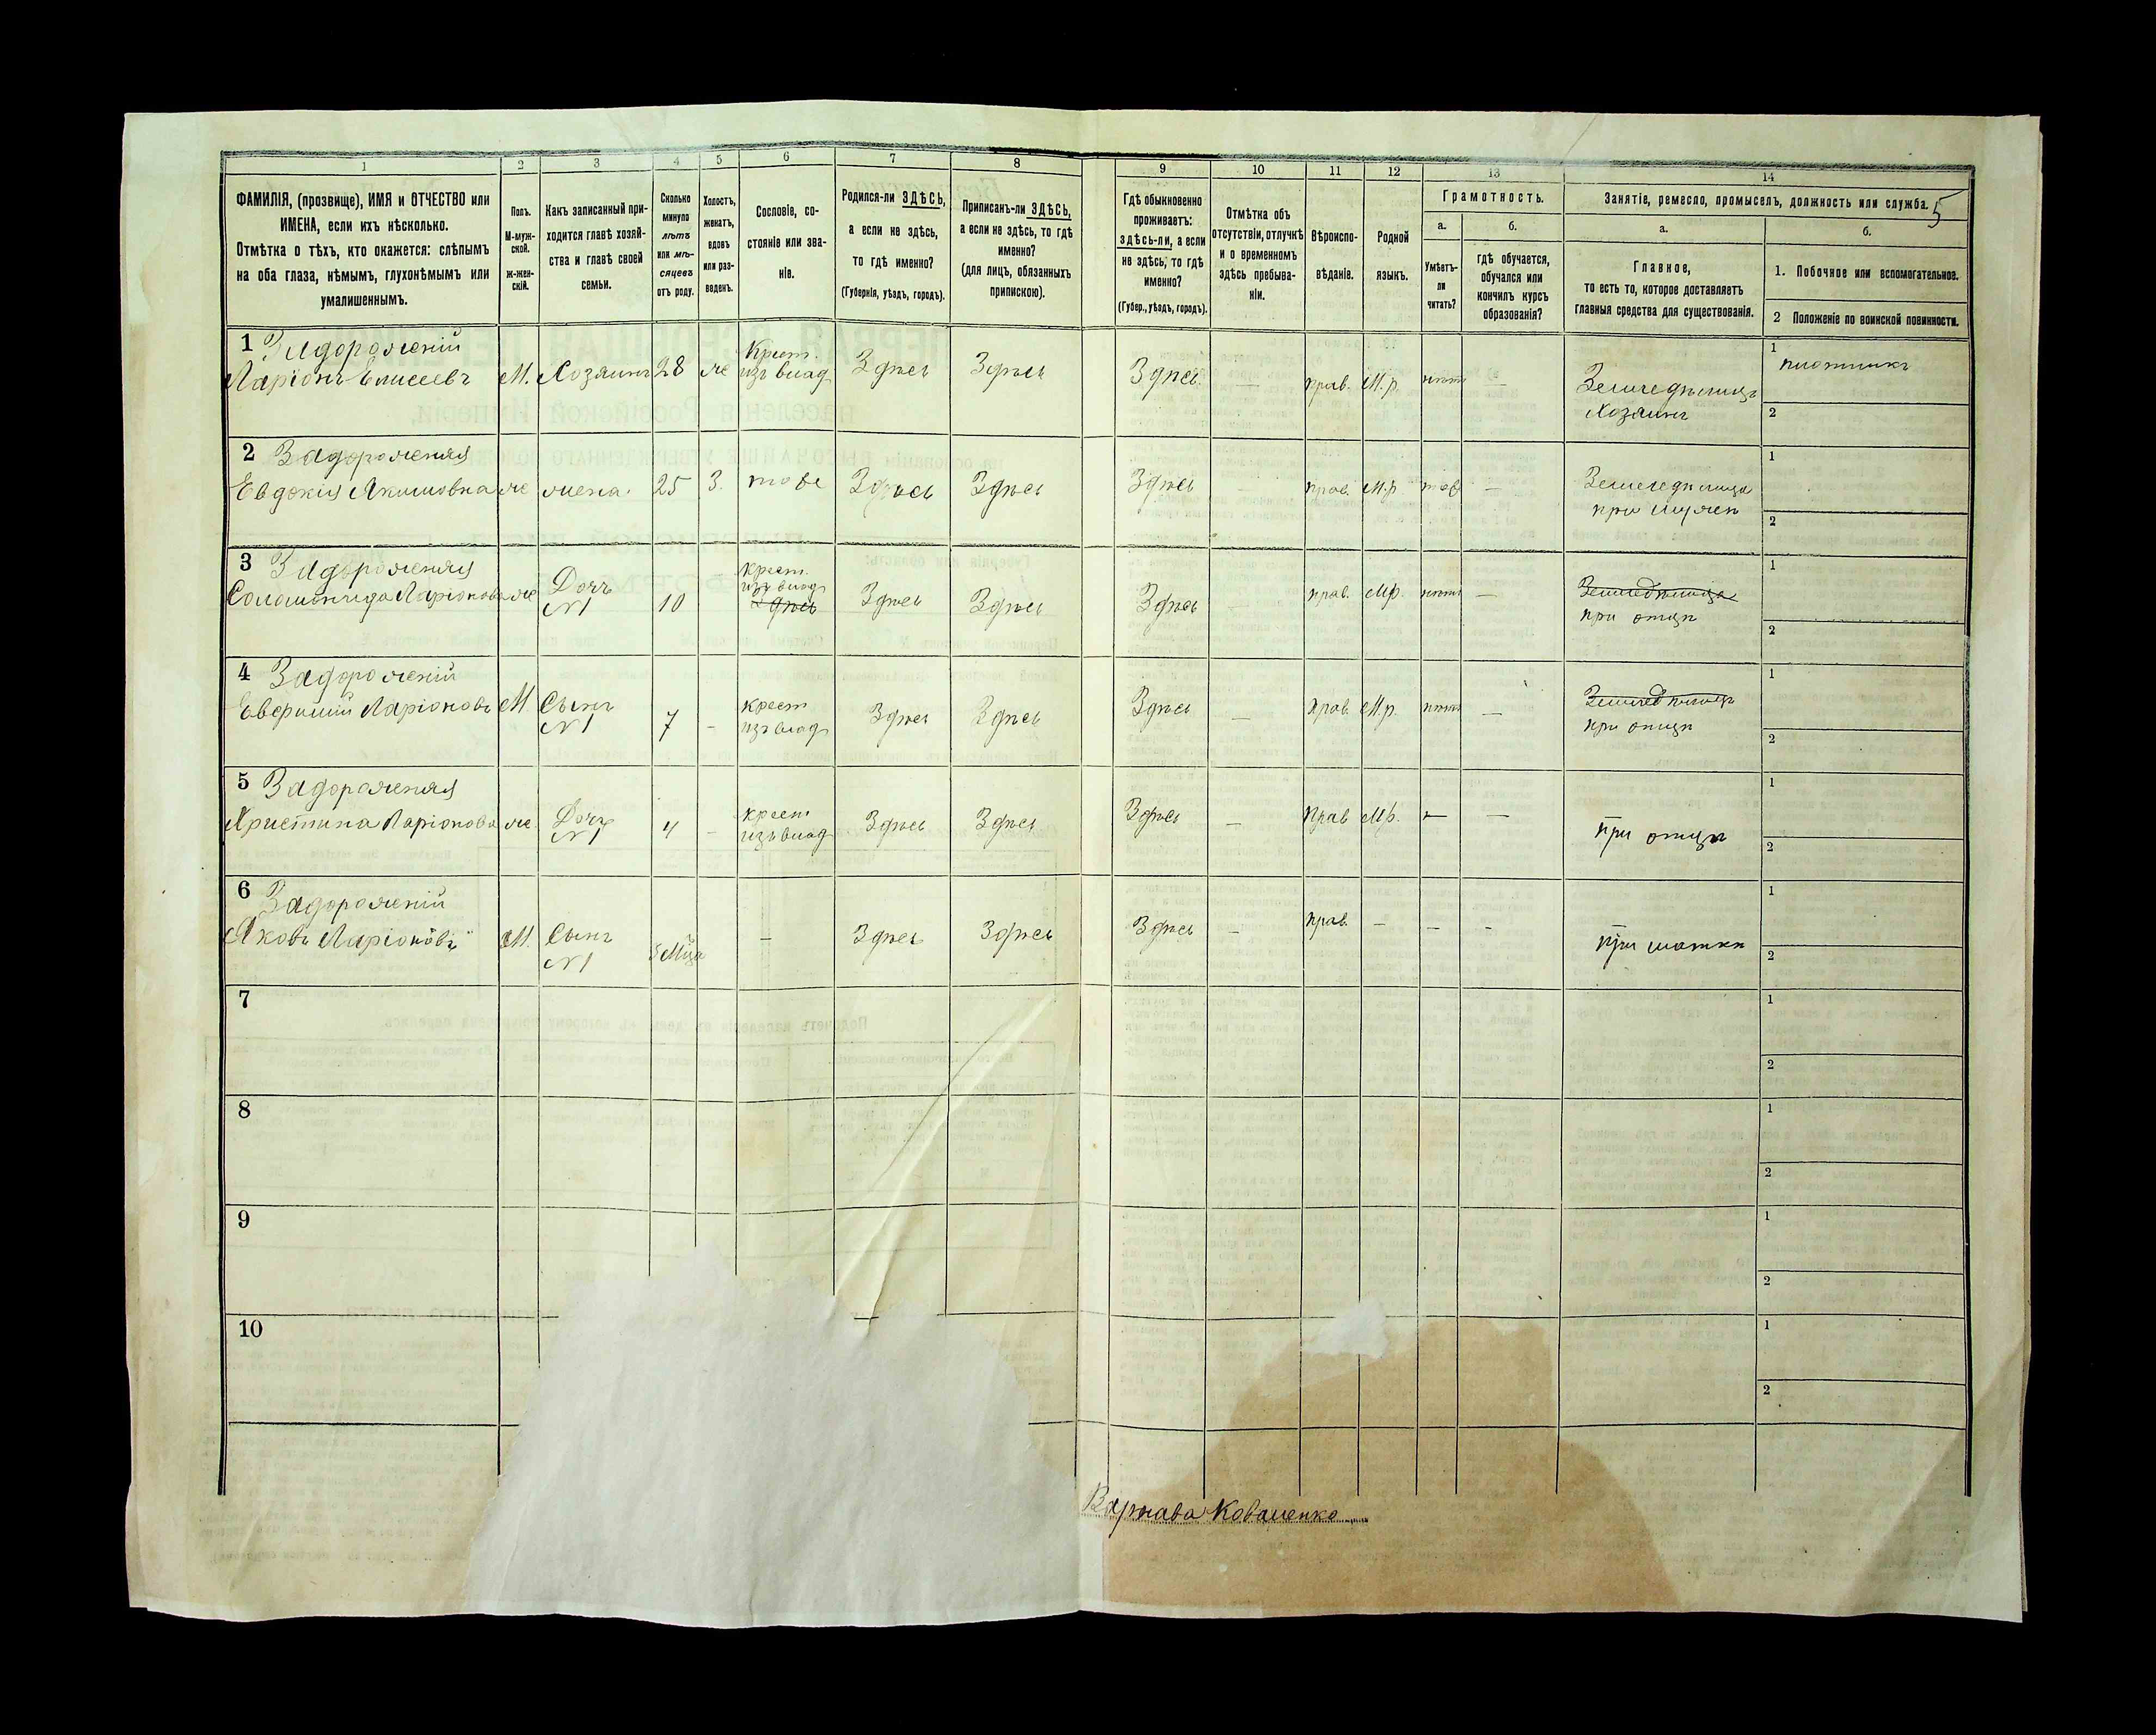 1
2
3
4
5
6
7
8
ФАМИЛІЯ, (прозвище), ИМЯ и ОТЧЕСТВО или
ИМЕНА, если ихъ нѣсколько.
Отмѣтка о тѣхъ, кто окажется: слѣпымъ
на оба глаза, нѣмымъ, глухонѣмымъ или
умалишеннымъ.
Полъ.
М-муж-
ской.
ж-жен-
скій.
Какъ записанный при-
ходится главѣ хозяй-
ства и главѣ своей
семьи.
Сколько
минуло
лѣтъ
или мѣ-
сяцевъ
отъ роду.
Холостъ,
женатъ,
вдовъ
или раз-
веденъ.
Сословіе, со-
стояніе или зва-
ніе.
Родился-ли ЗДѢСЬ,
а если не здѣсь,
то гдѣ именно?
(Губернія, уѣздъ, городъ).
Приписанъ-ли ЗДѢСЬ,
а если не здѣсь, то гдѣ
именно?
(для лицъ, обязанныхъ
припискою).
9
10
11
12
13
14
Гдѣ обыкновенно
проживаетъ:
здѣсь-ли, а если
не здѣсь, то гдѣ
именно?
(Губер., уѣздъ, городъ).
Отмѣтка объ
отсутствіи, отлучкѣ
и о временномъ
здѣсь пребыва-
ніи.
Вѣроиспо-
вѣданіе.
Родной
языкъ.
Грамотность.
а.
Умѣетъ-
ли
читать?
б.
гдѣ обучается,
обучался или
кончилъ курсъ
образованія?
Занятіе, ремесло, промыселъ, должность или служба.
5
а.
Главное,
то есть то, которое доставляетъ
главныя средства для существованія.
б.
1. Побочное или вспомогательное.
2 Положеніе по воинской повинности.
1 Задорожній
Ларіонъ Елисеевъ М. Хозяинъ 28 ж Крест. изъ влад Здѣсь Здѣсь Здѣсь — прав. М.р. нѣтъ — Земледѣлецъ Хозяинъ
1 плотникъ
2
2 Задорожняя
Евдокія Якимовна ж жена. 25 З. тоже Здѣсь Здѣсь Здѣсь — прав. М.р. — Земледѣлица при мужѣ
1
2
3 Задорожняя
Соломонида Ларіонова ж Дочь №1 10 - крест. изъ влад Здѣсь Здѣсь Здѣсь Здѣсь — прав. М.р. нѣтъ — Земледѣлица при отцѣ
1
2
4 Задорожній
Ларіоновъ М Сынъ №1 7 - крест изъ влад Здѣсь Здѣсь Здѣсь — прав. М.р. нѣтъ — Земледѣлецъ при отцѣ
1
2
5 Задорожняя
Христина Ларіонова ж. Дочь №1 4 - крест изъ влад Здѣсь Здѣсь Здѣсь — Прав М.р. — — при отцѣ
1
2
6 Задорожній
Яковъ Ларіоновъ М. Сынъ №1 5 М-ца — Здѣсь Здѣсь Здѣсь — прав. — — — При маткѣ
1
2
7
1
2
8
1
2
9
1
2
10
1
2
Варнава Коваленко